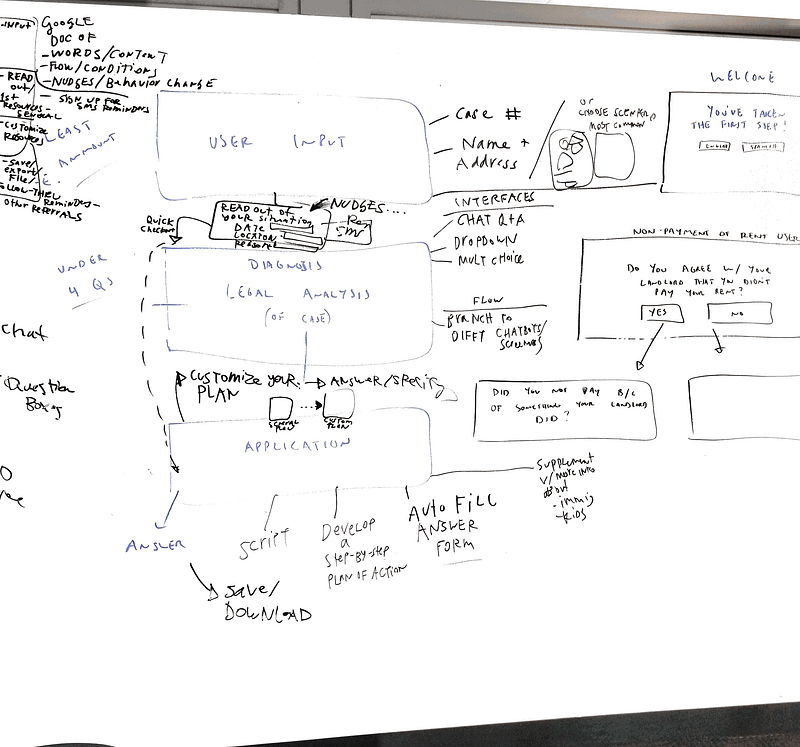 INPUT
GOOGLE
DOC OF
- WORDS/CONTENT
- FLOW/CONDITIONS
- NUDGES/BEHAVIOR CHANGE
- SIGN UP FOR
SMS REMINDERS
- READ
OUT/
RESOURCES -
GENERAL
- CUSTOMIZE
RESOURCES
- SAVE/
EXPORT
FILE/
REMINDERS -
OTHER REFERRALS
LEAST
AMOUNT
USER INPUT
- CASE #
- NAME +
ADDRESS
OR
CHOOSE SCENARIO
MOST COMMON
WELCOME
YOU'VE TAKEN
THE FIRST STEP!
ENGLISH
SPANISH
READ OUT OF
YOUR SITUATION
DATE
LOCATION
NUDGES....
Quick
INTERFACES
CHAT Q+A
DROPDOWN
MULT CHOICE
UNDER
4 QS
DIAGNOSIS
LEGAL ANALYSIS
(OF CASE)
FLOW
BRANCH TO
DIFFT CHATBOTS/
SCREENS
NON-PAYMENT OF RENT USER
DO YOU AGREE W/ YOUR
LANDLORD THAT YOU DIDN'T
PAY YOUR RENT?
YES
NO
chat
Question
Boxes
CUSTOMIZE YOUR
PLAN
ANSWER/SPECIFY
GENERAL
PLAN
CUSTOM
PLAN
DID YOU NOT PAY B/C
OF SOMETHING YOUR LANDLORD
DID?
APPLICATION
SUPPLEMENT
W/ MORE INFO
about
- immig
- kids
ANSWER
SCRIPT
DEVELOP
A
STEP-BY-STEP
PLAN OF ACTION
AUTO FILL
ANSWER
FORM
SAVE/
DOWNLOAD